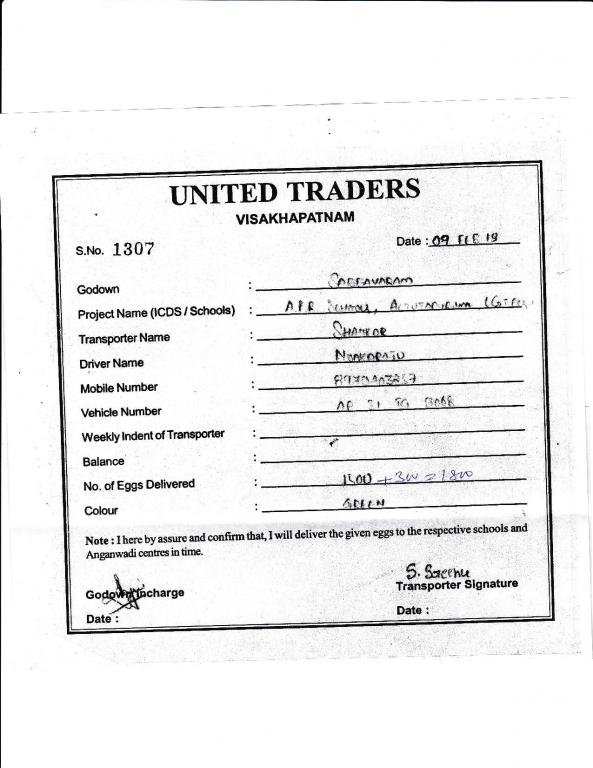 UNITED TRADERS
VISAKHAPATNAM
S.No. 1307
Date : 09 FEB 19
Godown : SABBAVARAM
Project Name (ICDS / Schools) : A.P.R SCHOOLS,
Transporter Name : SHANKAR
Driver Name :
Mobile Number :
Vehicle Number : AP 31
Weekly Indent of Transporter :
Balance :
No. of Eggs Delivered : 1500 + 300 = 1800
Colour : GREEN
Note : I here by assure and confirm that, I will deliver the given eggs to the respective schools and
Anganwadi centres in time.
S. Sreenu
Godown Incharge
Transporter Signature
Date :
Date :